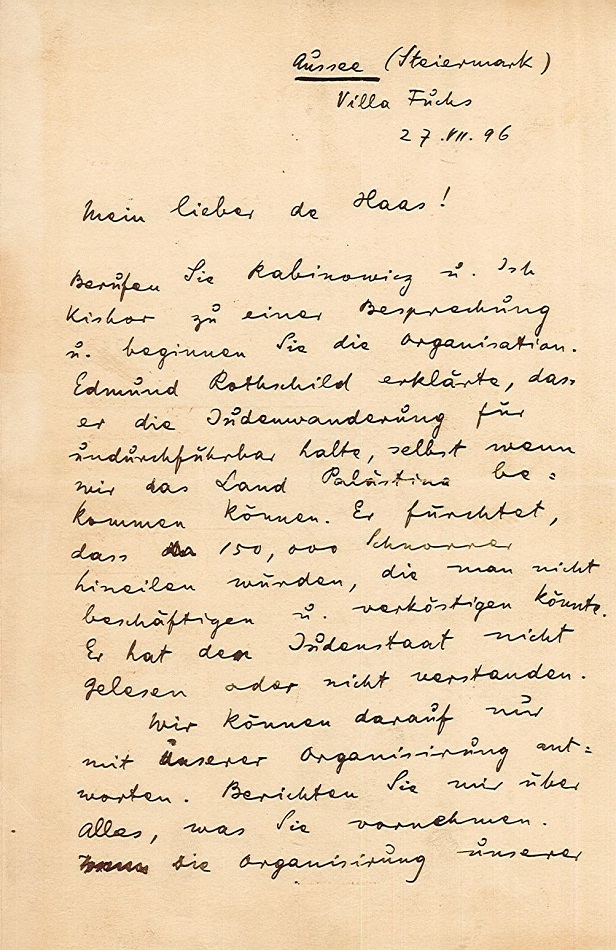 Aussee (Steiermark)
Villa Fuchs
27.VII.96
Mein lieber de Haas!
Berufen Sie Rabinowicz u. Ish
Kishor zu einer Besprechung
u. beginnen Sie die Organisation.
Edmund Rothschild erklärte, dass
er die Judenwanderung für
undurchführbar halte, selbst wenn
wir das Land Palästina be=
kommen können. Er fürchtet,
dass 150,000 Schnorrer
hineilen würden, die man nicht
beschäftigen u. verköstigen könnte.
Er hat den Judenstaat nicht
gelesen oder nicht verstanden.
Wir können darauf nur
mit unserer Organisirung ant=
worten. Berichten Sie mir über
Alles, was Sie vornehmen.
Die Organisirung unserer